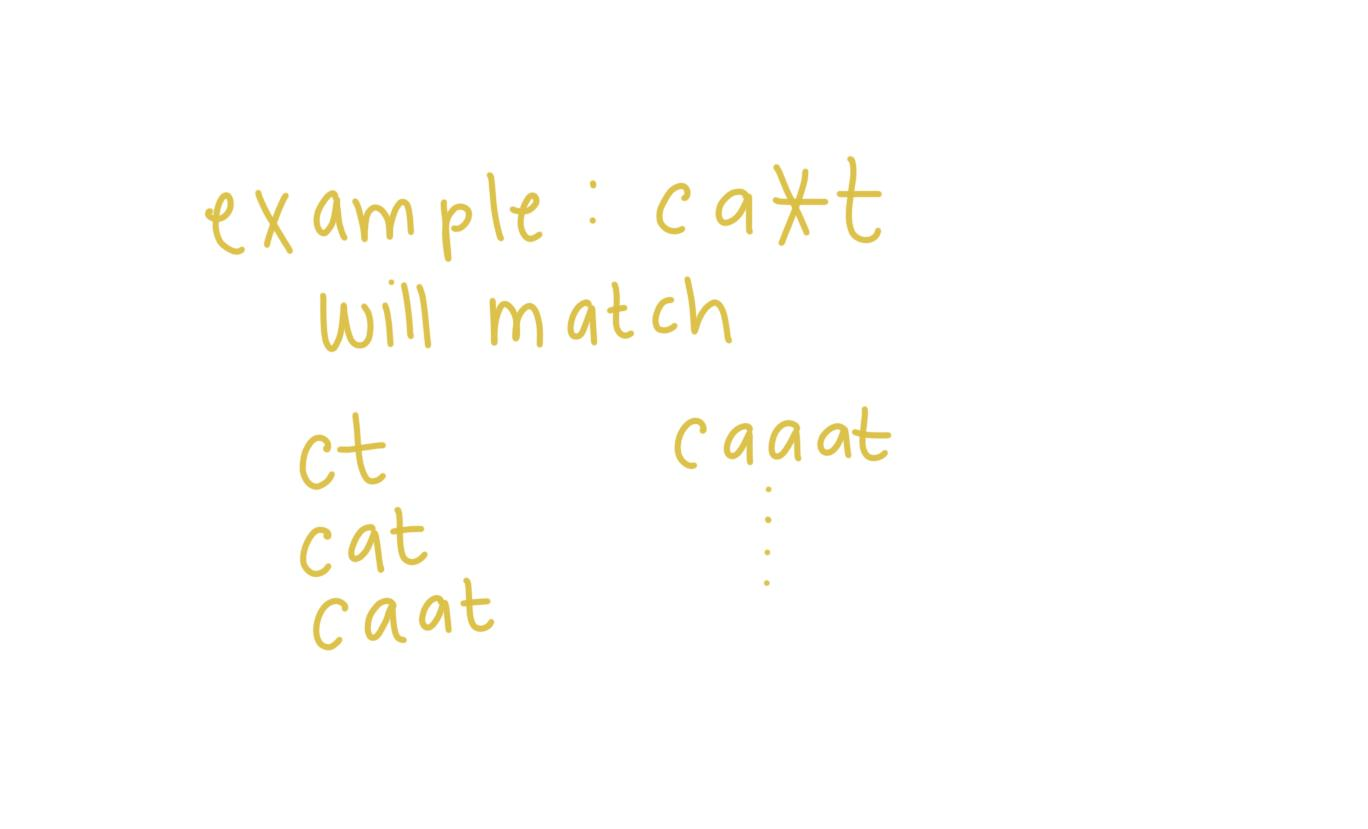 example : ca*t
will match
ct
cat
caat
caaat